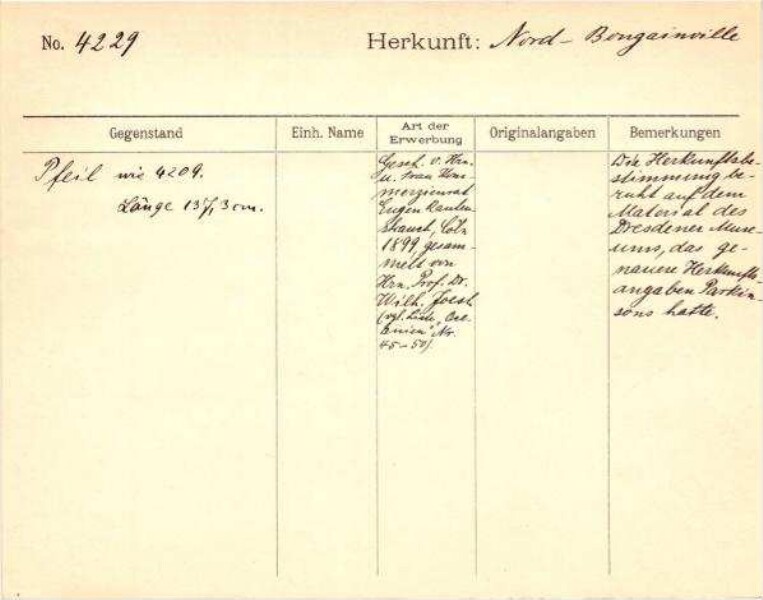 No. 4229 Herkunft: Nord-Bougainville
Gegenstand Einh. Name Art der Erwerbung Originalangaben Bemerkungen
Pfeil wie 4209.
Länge 137,3 cm.
Gesch. v. Hrn.
u. Frau Kom-
merzienrat
Eugen Rauten-
strauch, Cöln
1899, gesam-
melt von
Hrn. Prof. Dr.
Wilh. Joest
(vgl. Liste „Oce-
anien" Nr.
45-50)
Die Herkunftsbe-
stimmung be-
ruht auf dem
Material des
Dresdener Muse-
ums, das ge-
nauere Herkunfts-
angaben Parkin-
sons hatte.